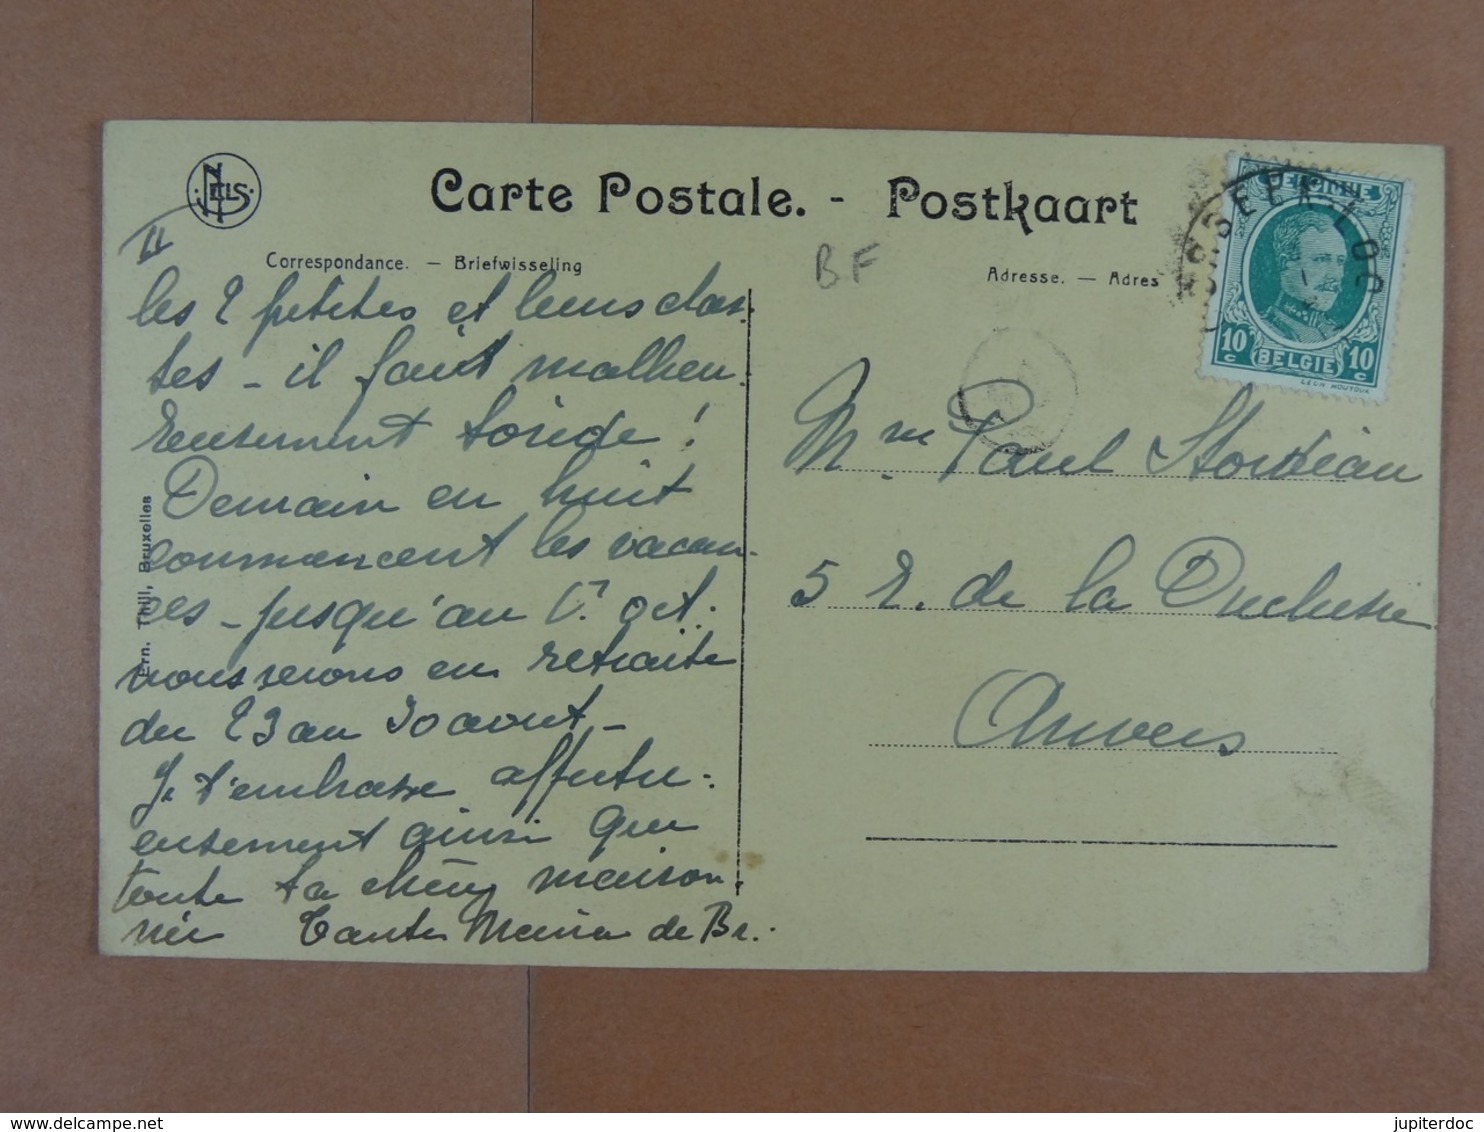 NELS
Carte Postale. - Postkaart
Correspondance. — Briefwisseling
Adresse. — Adres
BF
II
les 2 petites et leurs clas-
ses - il fait malheu-
reusement torride !
Demain en huit
commencent les vacan-
ces - jusqu'au 1r oct.
nous serons en retraite
du 23 au 30 aout -
Je t'embrasse affectu-
eusement ainsi que
toute ta chère maison-
née Tante Maria de Br.
Ern. Thill, Bruxelles
BELGIQUE
10 c
BELGIE
10 c
LEON HOUYOUX
Mme Paul
5 R. de la Duchesse
Anvers
delcampe.net
jupiterdoc